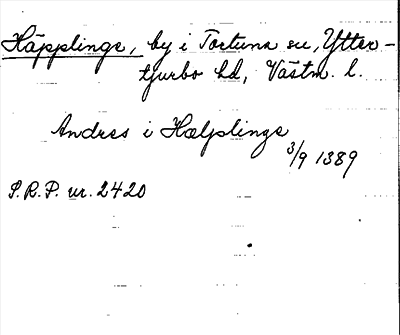 Häpplinge, by i Tortuna sn, Ytter-
tjurbo hd, Västm. l.
Andres i Hælplinge
3/9 1389
S.R.P. nr. 2420